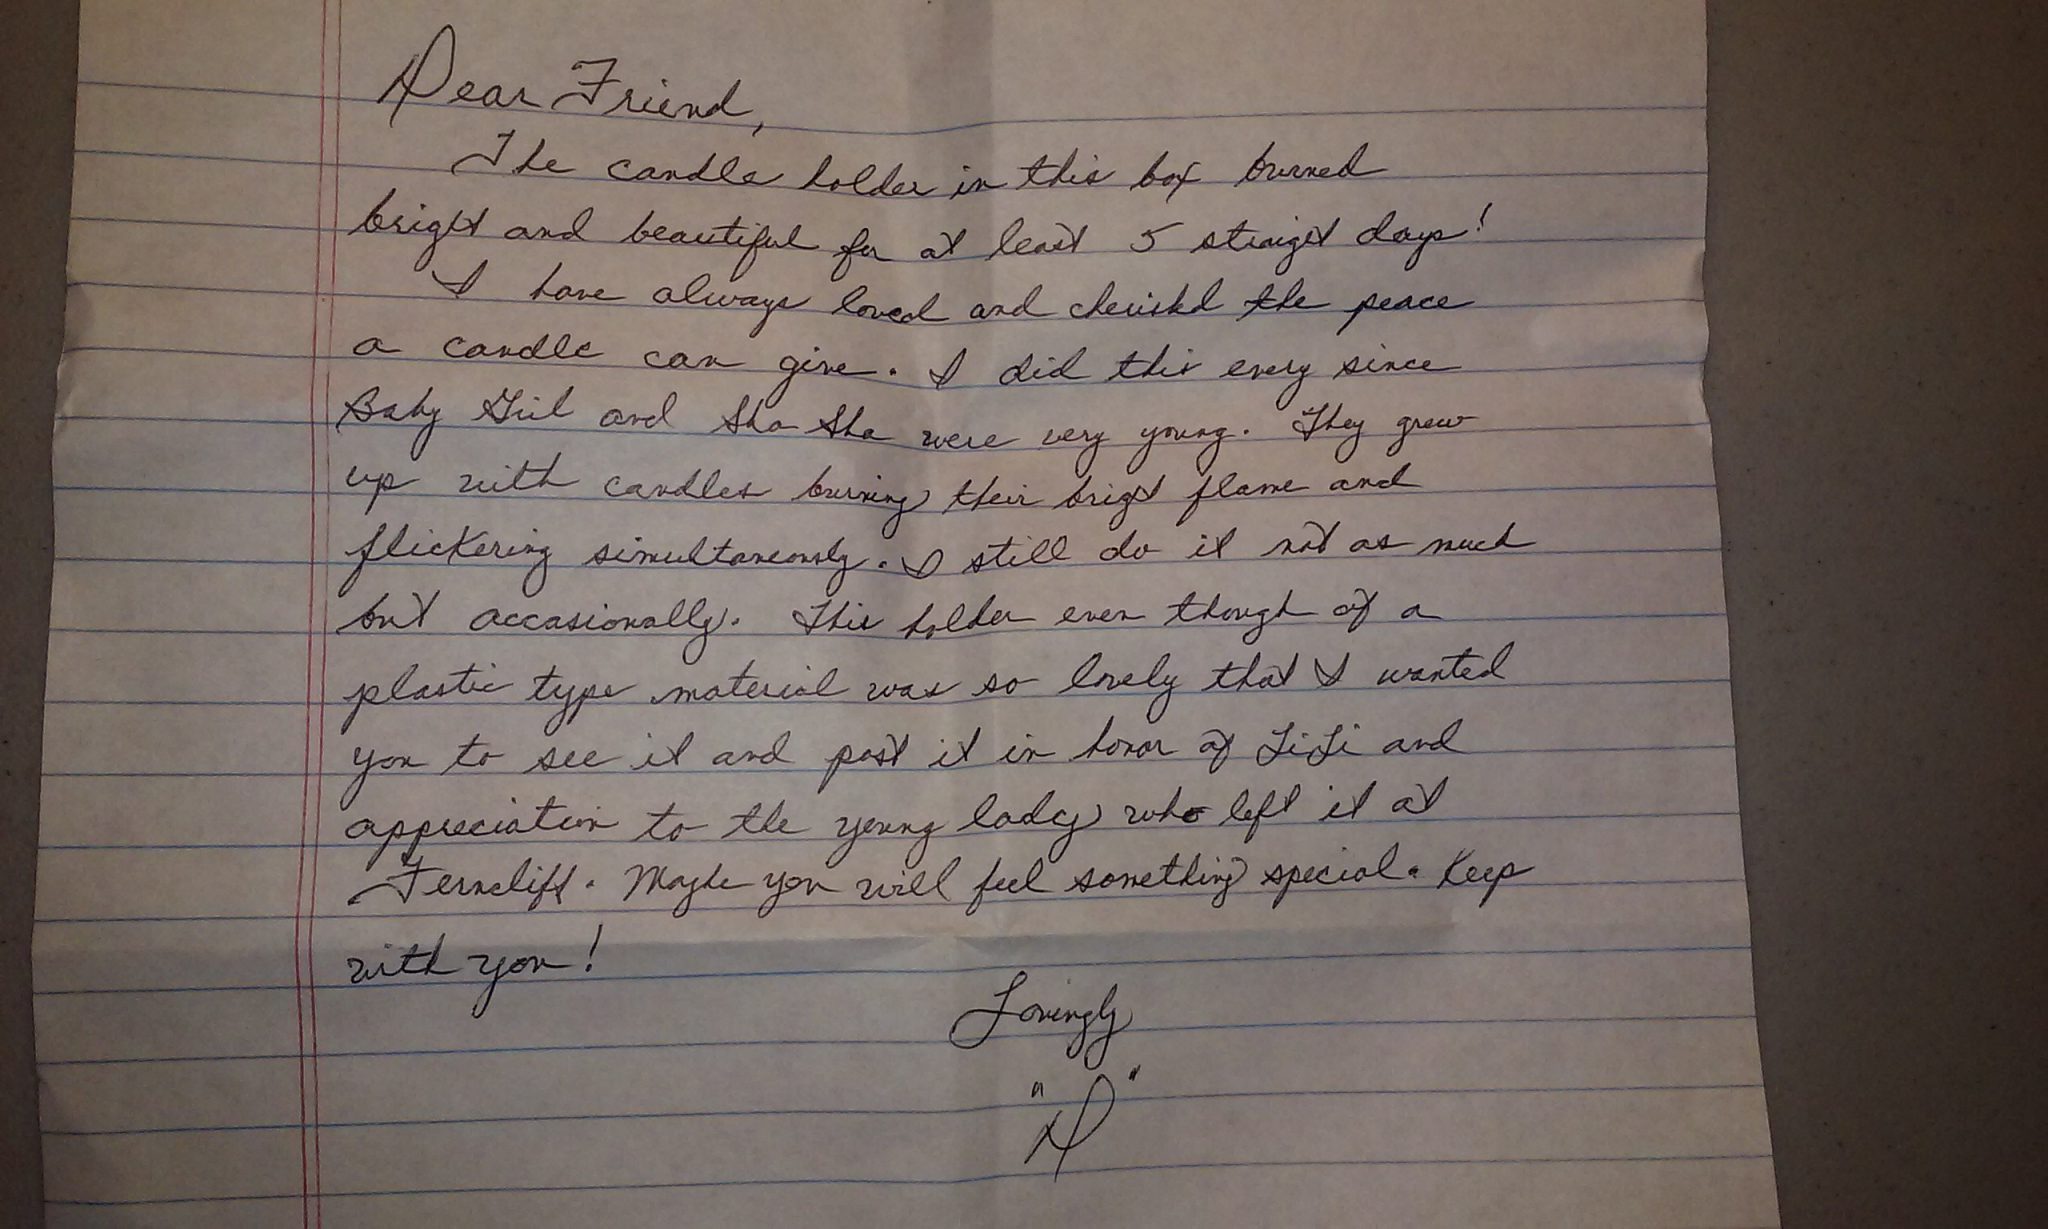 Dear Friend,
The candle holder in this box burned
bright and beautiful for at least 5 straight days!
I have always loved and cherished the peace
a candle can give. I did this every since
Baby Girl and Sha Sha were very young. They grew
up with candles burning their bright flame and
flickering simultaneously. I still do it not as much
but occasionally. This holder even though of a
plastic type material was so lovely that I wanted
you to see it and post it in honor of LiLi and
appreciation to the young lady who left it at
Ferncliff. Maybe you will feel something special. Keep
with you!
Lovingly
"D"